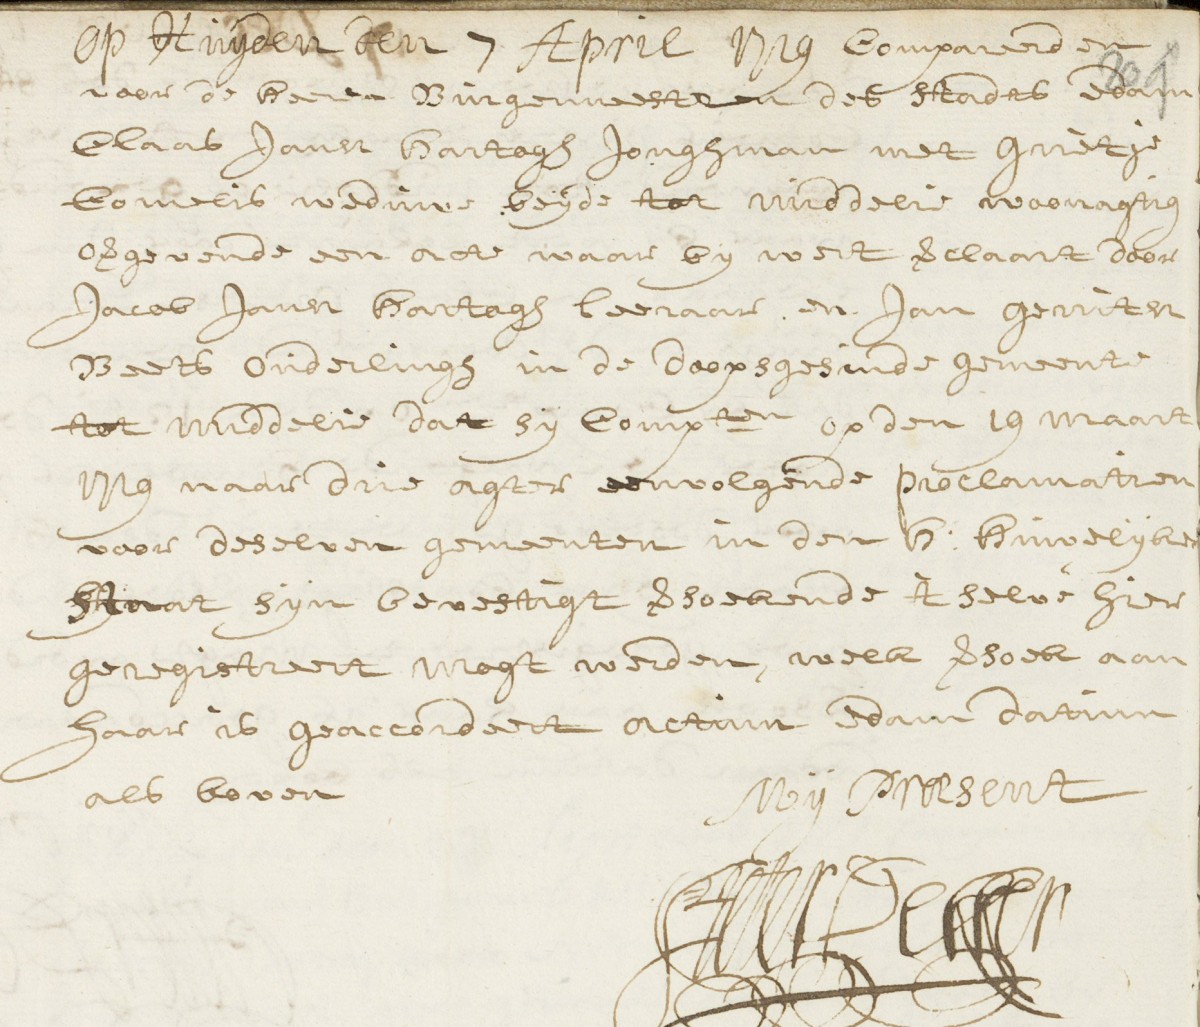 Op Huijden den 7 April 1719 Compareerden
voor de heeren Burgermeesteren des stadts Edam
Claas Jansz Hartogh Jonghman met Grietje
Cornelis weduwe beijde tot middelie woonagtig
opgevende een acte waar bij wert verclaart door
Jacob Jansz Hartogh leeraar en Jan gerritsz
Beets Ouderlingh in de doopsgesinde gemeente
tot middelie dat sij Compten op den 19 maart
1719 naar drie agter eenvolgende proclamatien
voor deselven gemeenten in den H: Huwelijken
staat sijn bevestigt versoekende t selve hier
geregistreert mogt werden, welk versoek aan
haar is geaccordeert actum Edam datum
als boven
Mij Present